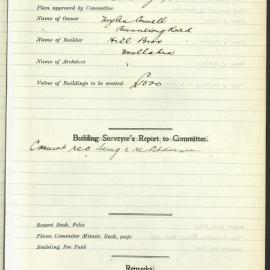 Plan approved by Committee
Name of Owner
Road
Name of Builder Hill Bros
Woollahra
Name of Architect
Value of Buildings to be erected £1000
Building Surveyor's Report to Committee.
Cannot rec being
Report Book, Folio
Plans Commitee Minute Book, page
Building Fee Paid
Remarks